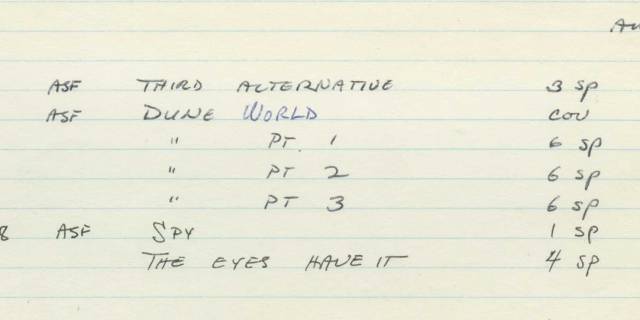 ASF THIRD ALTERNATIVE 3 SP
ASF DUNE WORLD COV
" PT. 1 6 SP
" PT 2 6 SP
" PT 3 6 SP
8 ASF SPY 1 SP
THE EYES HAVE IT 4 SP